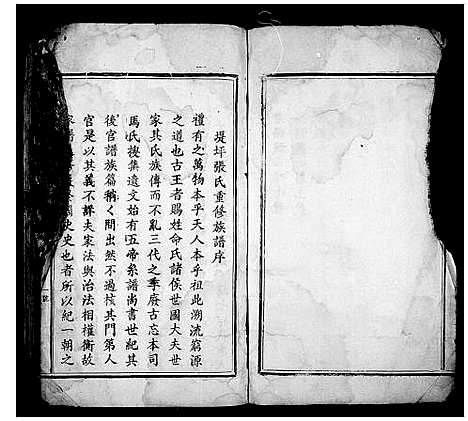 堤坪張氏重修族譜序
禮有之萬物本乎天人本乎祖此溯流窮源
之道也古王者賜姓命氏諸侯世國大夫世
家其氏族傳而不亂三代之季廢古忘本司
馬氏搜集遺文始有五帝系譜尚書世紀其
後官譜族篇稍々間出然不過核其門第人
官是以其義不詳夫家法與治法相權衡故
家譜國史史也者所以紀一朝之